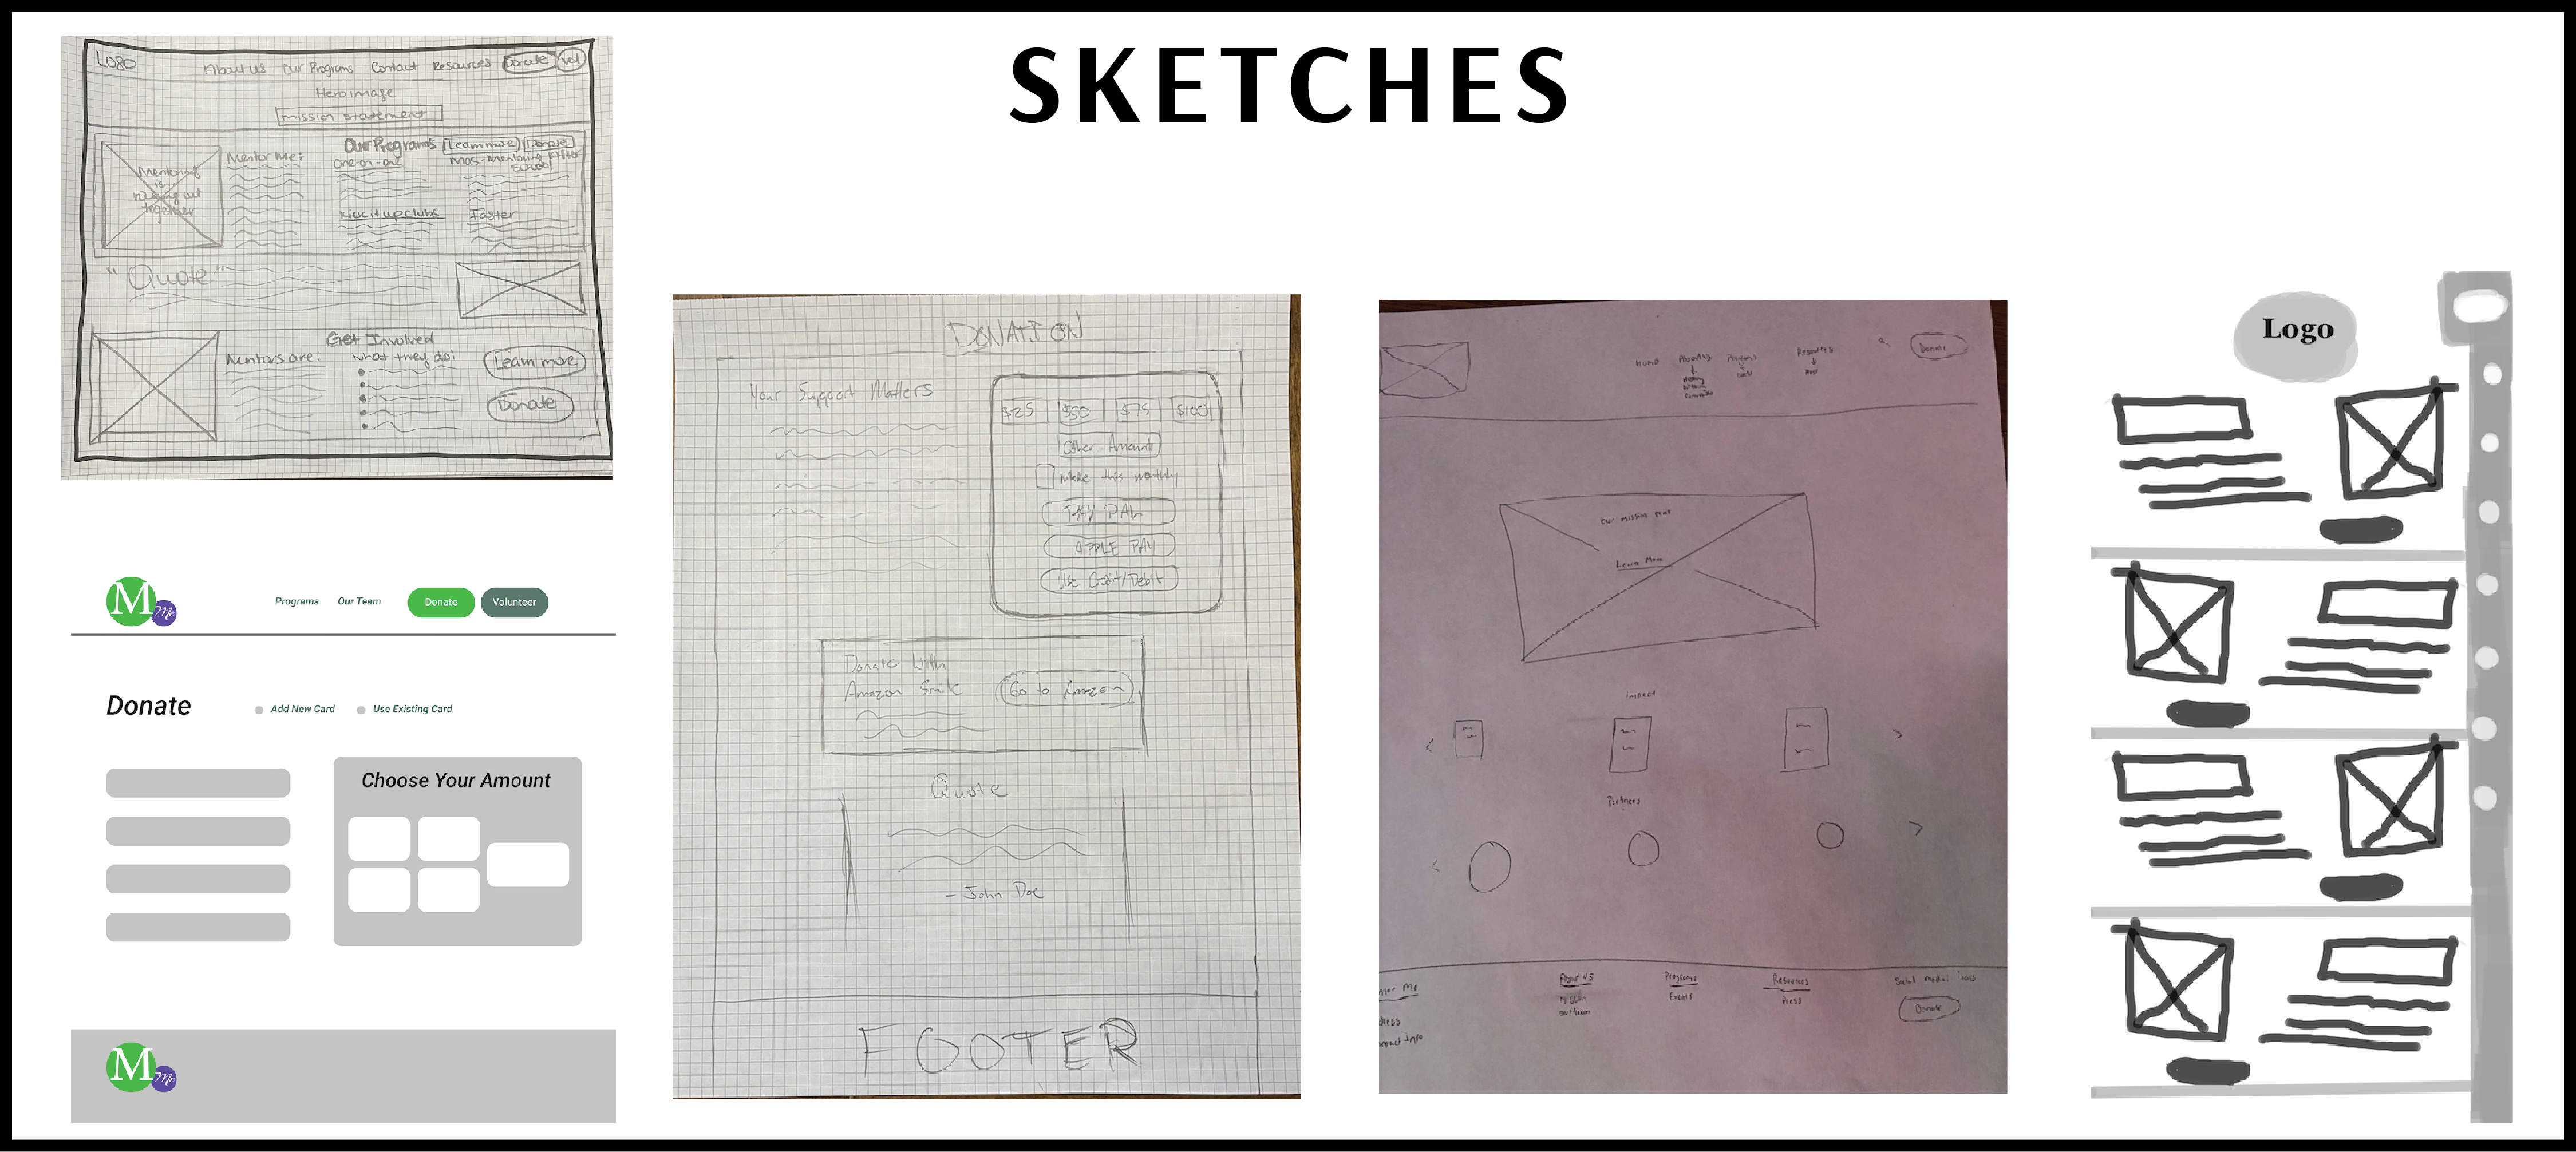 SKETCHES
Logo
About us Our Programs Contact Resources Donate Vol
Hero image
mission statement
Our Programs Learn more Donate
Mentor Me:
One-on-one
Mas-Mentoring After
School
Mentoring
is
together
Kick it up clubs
Faster
"Quote"
Get Involved
Mentors are:
what they do:
Learn more
Donate
M
Me
Programs Our Team Donate Volunteer
Donate
Add New Card Use Existing Card
Choose Your Amount
M
Me
DONATION
Your Support Matters
$25 $50 $75 $100
Other Amount
Make this monthly
PAY PAL
APPLE PAY
Use Credit/Debit
Donate With
Amazon Smile
Go to Amazon
Quote
- John Doe
FOOTER
Home About us Programs Resources Donate
Our mission
Learn More
impact
Partners
About US
Mission
our team
Programs
Events
Resources
Press
Social media icons
Donate
Logo